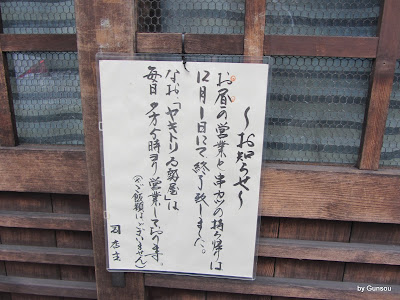 〜お知らせ〜
お昼の営業と串カツの持ち帰りは
12月1日にて終了致しました。
なお「ヤキトリ
屋」は
毎日 夕方5時ヨリ営業しております
(※ご飯類はございません)
店主
by Gunsou